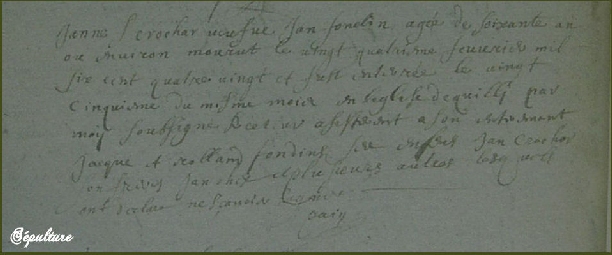 Janne Crochar veufue Jan fondin agée de soixante an
ou inuiron mourut le vingt quatriesme feuurier mil
six cent quatre vingt et fust interrée le vingt
cinquiesme du mesme mois en leglise de quilli par
moy soussigne asistant a son interemant
Jacque et rolland fondins ses enfens Jan Crochar
Jan et plusieurs autres lesquels
ont declare ne scauoir signer
Sépulture